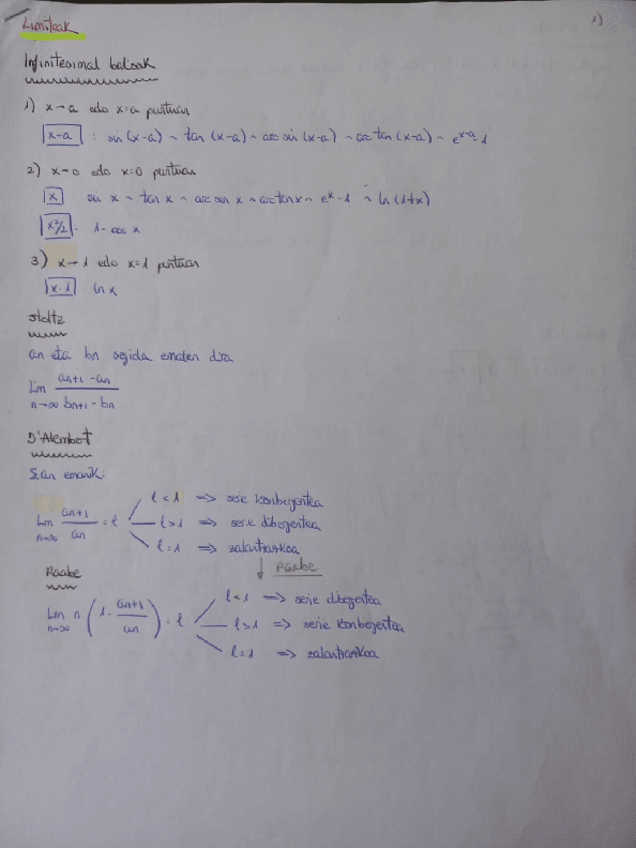 Limiteak
1)
Infinitesimal baliook
1) x→a edo x=a puntuan
x-a : sin (x-a) ~ tan (x-a) ~ arc sin (x-a) ~ arc tan (x-a) ~ e^(x-a) - 1
2) x→0 edo x=0 puntuan
x : sin x ~ tan x ~ arc sin x ~ arctan x ~ e^x - 1 ~ ln (1+x)
x²/2 : 1 - cos x
3) x→1 edo x=1 puntuan
x-1 : ln x
Stoltz
an eta bn segida ematen dira
lim n→∞ (an+1 - an) / (bn+1 - bn)
D'Alembet
Σan emanik:
lim n→∞ an+1 / an = l
l < 1 => serie konbergentea
l > 1 => serie dibergentea
l = 1 => zalantzazkoa
↓ Raabe
Raabe
lim n→∞ n (1 - an+1 / an) = l
l < 1 => serie dibergentea
l > 1 => serie konbergentea
l = 1 => zalantzazkoa